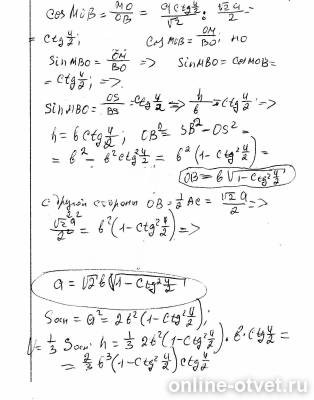 cos MOB = MO/OB = a ctg φ/2 / √2 : √2 a/2 =
= ctg φ/2; cos MOB = OM/BO; но
sin MBO = OM/BO => sin MBO = cos MOB =
= ctg φ/2; =>
sin MBO = OS/BS = ctg φ/2 => h/b = ctg φ/2 =>
h = b ctg φ/2; OB² = SB² - OS² =
= b² - b² ctg² φ/2 = b² (1 - ctg² φ/2) =
OB = b √1 - ctg² φ/2
с другой стороны OB = 1/2 AC = √2 a/2 =>
√2² a²/2² = b² (1 - ctg² φ/2) =>
a = √2 b √1 - ctg² φ/2
Sосн = a² = 2b² (1 - ctg² φ/2);
V = 1/3 Sосн · h = 1/3 2b² (1 - ctg² φ/2) · b · ctg φ/2 =
= 2/3 b³ (1 - ctg² φ/2) ctg φ/2
online-otvet.ru